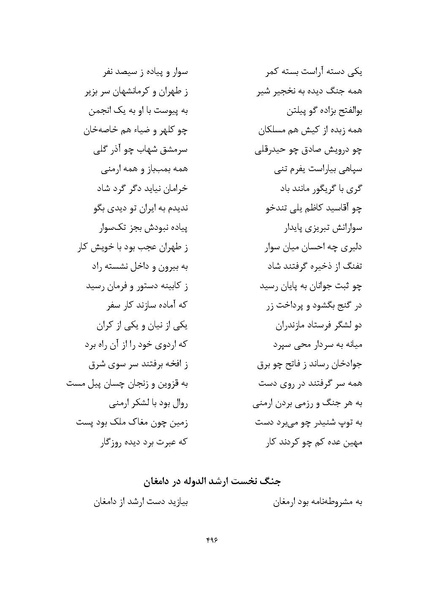 یکی دسته آراست بسته کمر سوار و پیاده ز سیصد نفر
همه جنگ دیده به نخجیر شیر ز طهران و کرمانشهان سر بزیر
بوالفتح بزاده گو پیلتن به پیوست با او به یک انجمن
همه زبده از کیش هم مسلکان چو کلهر و ضیاء هم خاصه‌خان
چو درویش صادق چو حیدرقلی سرمشق شهاب چو آذر گلی
سپاهی بیاراست یفرم تنی همه بمب‌باز و همه ارمنی
گری با گریگور مانند باد خرامان نیاید دگر گرد شاد
چو آقاسید کاظم یلی تندخو ندیدم به ایران تو دیدی بگو
سوارانش تبریزی پایدار پیاده نبودش بجز تک‌سوار
دلیری چه احسان میان سوار ز طهران عجب بود با خویش کار
تفنگ از ذخیره گرفتند شاد به بیرون و داخل نشسته راد
چو ثبت جوانان به پایان رسید ز کابینه دستور و فرمان رسید
در گنج بگشود و پرداخت زر که آماده سازند کار سفر
دو لشگر فرستاد مازندران یکی از نیان و یکی از کران
میانه به سردار محی سپرد که اردوی خود را از آن راه برد
جوادخان رساند ز فاتح چو برق ز افخه برفتند سر سوی شرق
همه سر گرفتند در روی دست به قزوین و زنجان چسان پیل مست
به هر جنگ و رزمی بردن ارمنی روال بود با لشکر ارمنی
به توپ شنیدر چو می‌برد دست زمین چون مغاک ملک بود پست
مهین عده کم چو کردند کار که عبرت برد دیده روزگار
جنگ نخست ارشد الدوله در دامغان
به مشروطه‌نامه بود ارمغان بیازید دست ارشد از دامغان
۴۹۶